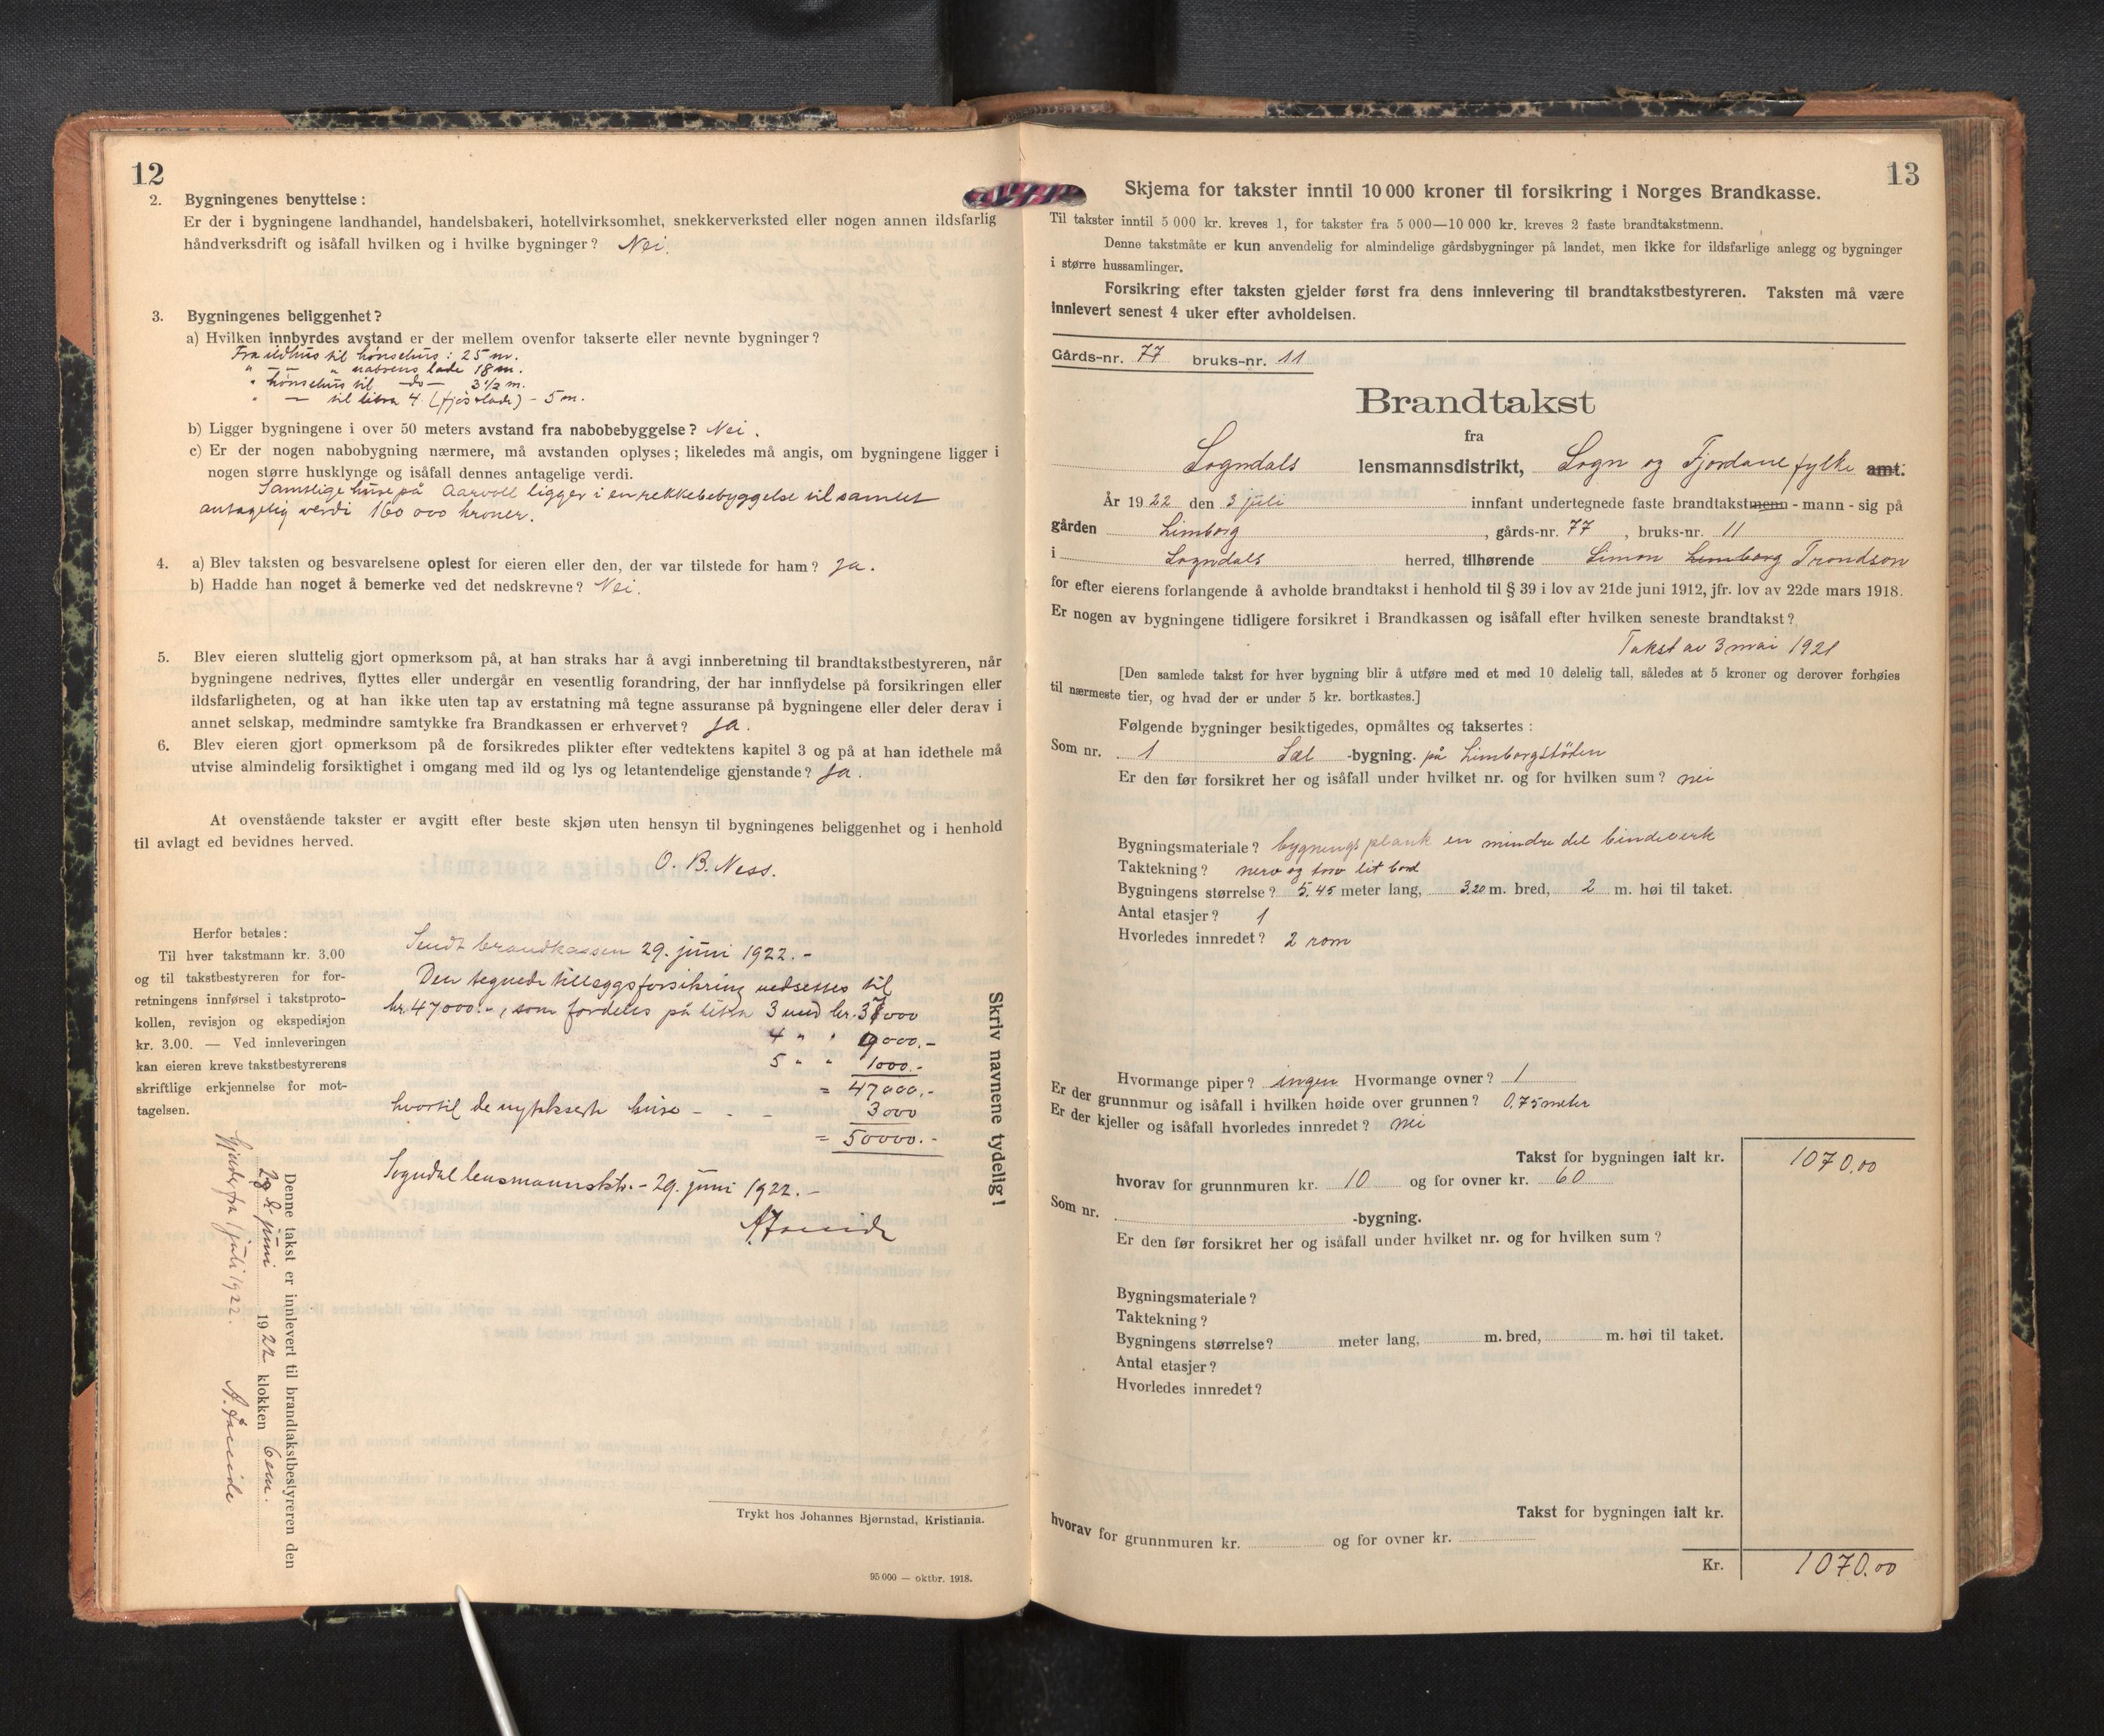 12
2. Bygningenes benyttelse:
Er der i bygningene landhandel, handelsbakeri, hotellvirksomhet, snekkerverksted eller nogen annen ildsfarlig
håndverksdrift og isåfall hvilken og i hvilke bygninger? Nei.
3. Bygningenes beliggenhet?
a) Hvilken innbyrdes avstand er der mellem ovenfor takserte eller nevnte bygninger?
Fra ildhus til hønsehus: 25 m.
" — " naboens lade 18 m.
" hønsehus til —do— 3½ m.
" — til litra 4. (fjøs+lade) - 5 m.
b) Ligger bygningene i over 50 meters avstand fra nabobebyggelse? Nei.
c) Er der nogen nabobygning nærmere, må avstanden oplyses; likeledes må angis, om bygningene ligger i
nogen større husklynge og isåfall dennes antagelige verdi.
Samtlige huse på Aarvoll ligger i en rekkebebyggelse til samlet
antagelig verdi 160 000 kroner.
4. a) Blev taksten og besvarelsene oplest for eieren eller den, der var tilstede for ham? Ja.
b) Hadde han noget å bemerke ved det nedskrevne? Nei.
5. Blev eieren sluttelig gjort opmerksom på, at han straks har å avgi innberetning til brandtakstbestyreren, når
bygningene nedrives, flyttes eller undergår en vesentlig forandring, der har innflydelse på forsikringen eller
ildsfarligheten, og at han ikke uten tap av erstatning må tegne assuranse på bygningene eller deler derav i
annet selskap, medmindre samtykke fra Brandkassen er erhvervet? Ja.
6. Blev eieren gjort opmerksom på de forsikredes plikter efter vedtektens kapitel 3 og på at han idethele må
utvise almindelig forsiktighet i omgang med ild og lys og letantendelige gjenstande? Ja.
At ovenstående takster er avgitt efter beste skjøn uten hensyn til bygningenes beliggenhet og i henhold
til avlagt ed bevidnes herved.
O. B. Ness.
Herfor betales:
Til hver takstmann kr. 3.00
og til takstbestyreren for for-
retningens innførsel i takstproto-
kollen, revisjon og ekspedisjon
kr. 3.00. — Ved innleveringen
kan eieren kreve takstbestyrerens
skriftlige erkjennelse for mot-
tagelsen.
Sendt brandkassen 29. juni 1922. -
Den tegnede tilleggsforsikring nedsettes til
kr. 47000.-, som fordeles på litra 3 med kr. 37000
4 " " 9000.-
5 " " 1000.-
= 47000.-
hvortil de nytakserte huse - - - 3000
= 50000.-
Sogndal lensmannsktr. - 29. juni 1922. -
Skriv navnene tydelig!
Denne takst er innlevert til brandtakstbestyreren den
juni 1922 klokken 6 em.
Gjelder fra 1 juli 1922.
Trykt hos Johannes Bjørnstad, Kristiania.
95 000 — oktbr. 1918.
13
Skjema for takster inntil 10 000 kroner til forsikring i Norges Brandkasse.
Til takster inntil 5 000 kr. kreves 1, for takster fra 5 000—10 000 kr. kreves 2 faste brandtakstmenn.
Denne takstmåte er kun anvendelig for almindelige gårdsbygninger på landet, men ikke for ildsfarlige anlegg og bygninger
i større hussamlinger.
Forsikring efter taksten gjelder først fra dens innlevering til brandtakstbestyreren. Taksten må være
innlevert senest 4 uker efter avholdelsen.
Gårds-nr. 77 bruks-nr. 11
Brandtakst
fra
Sogndals lensmannsdistrikt, Sogn og Fjordane fylke amt.
År 1922 den 3 juli innfant undertegnede faste brandtakstmenn - mann - sig på
gården Limborg, gårds-nr. 77, bruks-nr. 11
i Sogndals herred, tilhørende Simon Limborg Trondson
for efter eierens forlangende å avholde brandtakst i henhold til § 39 i lov av 21de juni 1912, jfr. lov av 22de mars 1918.
Er nogen av bygningene tidligere forsikret i Brandkassen og isåfall efter hvilken seneste brandtakst?
Takst av 3 mai 1921
[Den samlede takst for hver bygning blir å utføre med et med 10 delelig tall, således at 5 kroner og derover forhøies
til nærmeste tier, og hvad der er under 5 kr. bortkastes.]
Følgende bygninger besiktigedes, opmåltes og taksertes:
Som nr. 1 Sæl -bygning. på Limborgstölen
Er den før forsikret her og isåfall under hvilket nr. og for hvilken sum? nei
Bygningsmateriale? bygnings plank en mindre del bindeverk
Taktekning? nevr og torv lit bord
Bygningens størrelse? 5.45 meter lang, 3.20 m. bred, 2 m. høi til taket.
Antal etasjer? 1
Hvorledes innredet? 2 rom
Hvormange piper? ingen Hvormange ovner? 1
Er der grunnmur og isåfall i hvilken høide over grunnen? 0,75 meter
Er der kjeller og isåfall hvorledes innredet? nei
Takst for bygningen ialt kr. 1070.00
hvorav for grunnmuren kr. 10 og for ovner kr. 60
Som nr. -bygning.
Er den før forsikret her og isåfall under hvilket nr. og for hvilken sum?
Bygningsmateriale?
Taktekning?
Bygningens størrelse? meter lang, m. bred, m. høi til taket.
Antal etasjer?
Hvorledes innredet?
Takst for bygningen ialt kr.
hvorav for grunnmuren kr. og for ovner kr.
Kr. 1070.00